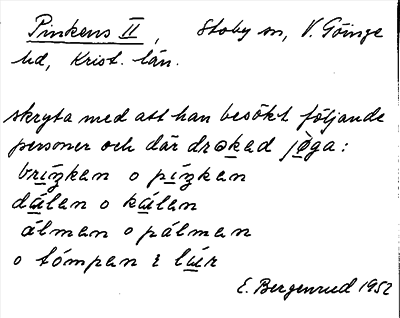 Pinkens II, Stoby sn, V. Göinge
hd, Krist. län.
skryta med att han besökt följande
personer och där drəkad jòga:
brízkan o pízkan
dálan o kálan
álman o pálman
o tómpan i lúr
E. Bergenrud 1952